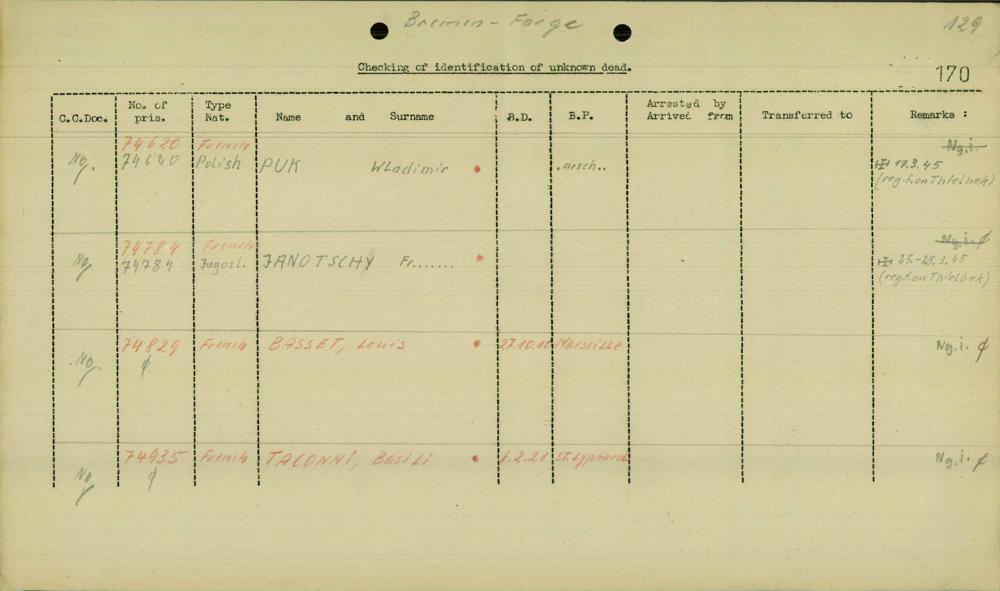 Bremen - Farge
129
Checking of identification of unknown dead.
170
C.C.Doc. No. of pris. Type Nat. Name and Surname B.D. B.P. Arrested by Arrived from Transferred to Remarks :
74620 French Ng.i.
Ng. 74620 Polish PUK Wladimir .arsch.. 17.3.45
(reg.f.on Thielbek)
74784 French Ng.i. ϕ
Ng 74784 Jugosl. JANOTSCHY Fr....... 25.-28.3.45
(reg.f.on Thielbek)
Ng. 74829 French BASSET, Louis 27.10.10 Marseille Ng.i. ϕ
ϕ
74935 French TACONNI, Basili 6.2.21 Ng.i. ϕ
Ng ϕ